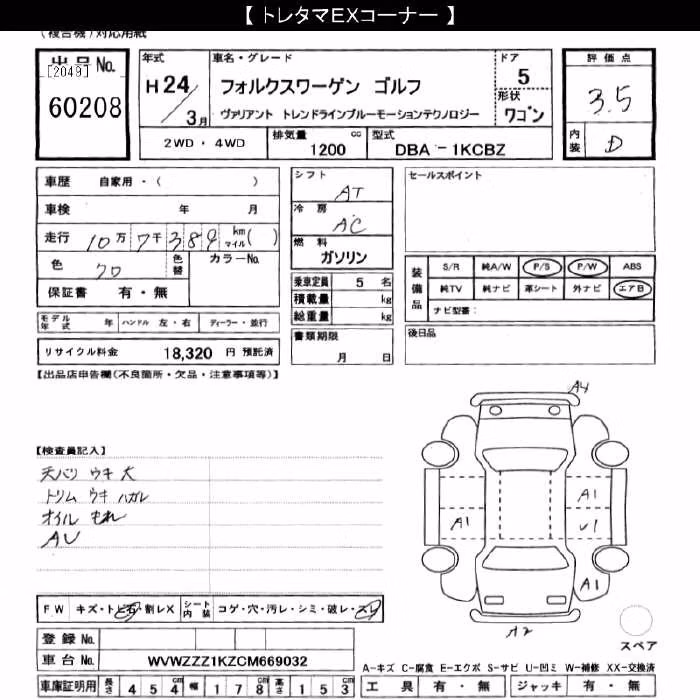 【 トレタマEXコーナー 】
(複合機)対応用紙
出品No.
[2049]
60208
年式
H 24/3月
車名・グレード
フォルクスワーゲン ゴルフ
ヴァリアント トレンドラインブルーモーションテクノロジー
ドア
5
形状
ワゴン
2WD ・ 4WD
排気量 cc
1200
型式
DBA - 1KCBZ
評価点
3.5
内装
D
車歴 自家用・( )
車検 年 月
走行 10万7千389 km マイル( )
色 クロ
色替
カラーNo.
保証書 有・無
シフト
AT
冷房
AC
燃料
ガソリン
乗車定員 5 名
積載量 kg
総重量 kg
書類期限
月 日
セールスポイント
装備品
S/R 純A/W P/S P/W ABS
純TV 純ナビ 革シート 外ナビ エアB
ナビ型番:
後日品
モデル年式 年 ハンドル 左・右 ディーラー・並行
リサイクル料金 18,320 円 預託済
【出品店申告欄(不良箇所・欠品・注意事項等)】
【検査員記入】
天バリ ウキ 大
トリム ウキ ハガレ
オイル もれ
AU
A4
A1
A1
U1
A1
A2
FW キズ・トビ石・割レX
シート内装 コゲ・穴・汚レ・シミ・破レ・スレ
登録No.
車台No. WVWZZZ1KZCM669032
スペア
A-キズ C-腐食 E-エクボ S-サビ U-凹ミ W-補修 XX-交換済
車庫証明用 長さ 454 cm 幅 178 cm 高さ 153 cm
工具 有・無 ジャッキ 有・無